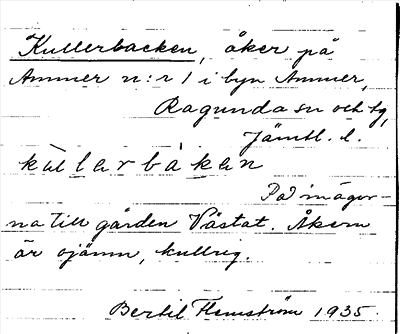 Kullerbacken, åker på
Ammer n:r 1 i byn Ammer,
Ragunda sn och tg,
Jämtl. l.
kùl̲l̲ar̲bàk̲en
På inägor-
na till gården Västat. Åkern
är ojämn, kullrig.
Bertil Flemström 1935.